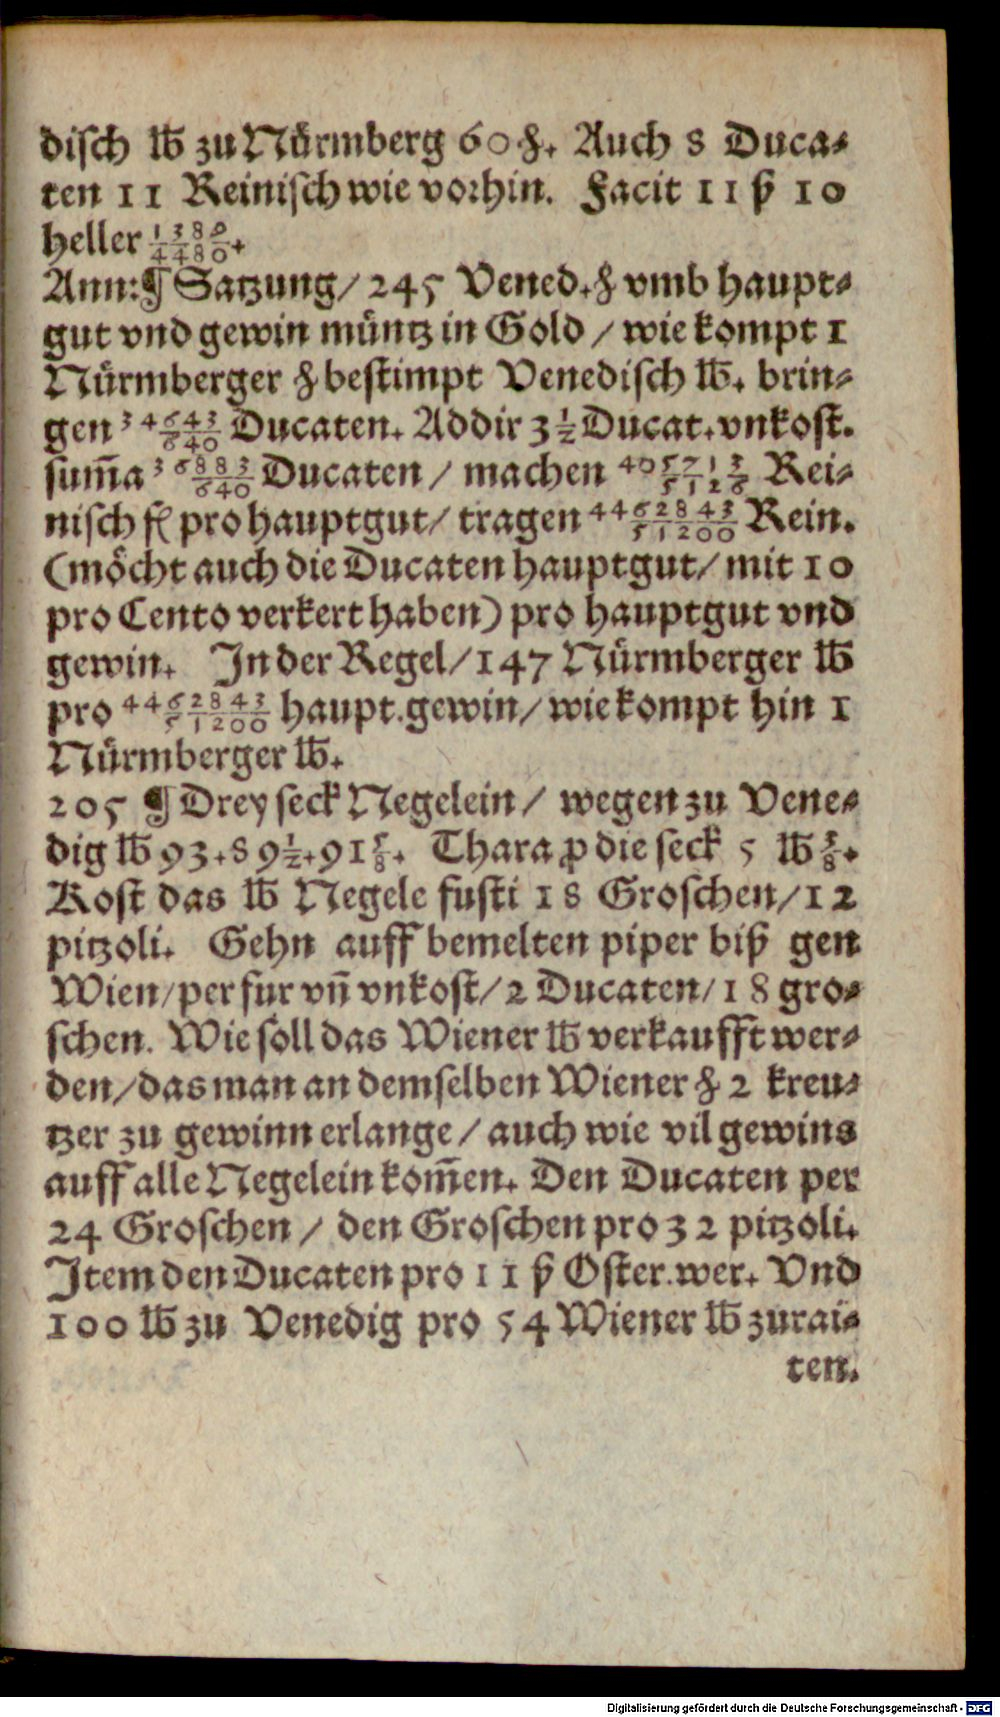 disch ℔ zu Nürmberg 60 ₰. Auch 8 Duca⸗
ten 11 Reinisch wie vorhin. Facit 11 ß 10
heller 1389/4480.
Ann:¶ Satzung/ 245 Vened. ₰ vmb haupt⸗
gut vnd gewin müntz in Gold / wie kompt 1
Nürmberger ₰ bestimpt Venedisch ℔. brin⸗
gen 34643/640 Ducaten. Addir 3 1/2 Ducat. vnkost.
sum̃a 36883/640 Ducaten / machen 405713/5120 Rei⸗
nisch fl pro hauptgut/ tragen 4462843/51200 Rein.
(möcht auch die Ducaten hauptgut/ mit 10
pro Cento verkert haben) pro hauptgut vnd
gewin. In der Regel/ 147 Nürmberger ℔
pro 4462843/51200 haupt.gewin/ wie kompt hin 1
Nürmberger ℔.
205 ¶ Drey seck Negelein / wegen zu Vene⸗
dig ℔ 93. 89 1/2. 91 5/8. Thara ꝓ die seck 5 ℔ 5/8.
Kost das ℔ Negele fusti 18 Groschen/ 12
pitzoli. Gehn auff bemelten piper biß gen
Wien/ per fur vñ vnkost/ 2 Ducaten/ 18 gro⸗
schen. Wie soll das Wiener ℔ verkaufft wer⸗
den/ das man an demselben Wiener ₰ 2 kreu⸗
tzer zu gewinn erlange / auch wie vil gewins
auff alle Negelein kom̃en. Den Ducaten per
24 Groschen / den Groschen pro 32 pitzoli.
Item den Ducaten pro 11 ß Oster.wer. Vnd
100 ℔ zu Venedig pro 54 Wiener ℔ zu rai⸗
ten.
Digitalisierung gefördert durch die Deutsche Forschungsgemeinschaft - DFG